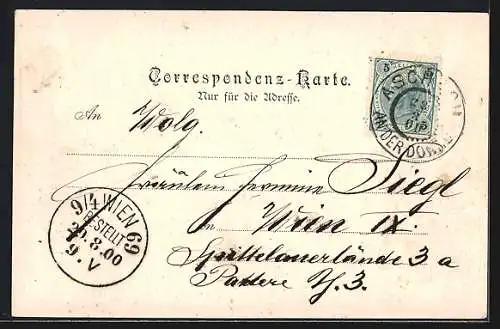 Correspondenz-Karte.
Nur für die Adresse.
An Wolg.
Fräulein Hermine Siegl
in Wien IX.
Spittelauerlände 3 a
Parterre T. 3.
5
ASCHACH
AN DER DONAU
9/4 WIEN 69
BESTELLT
25.8.00
9.V